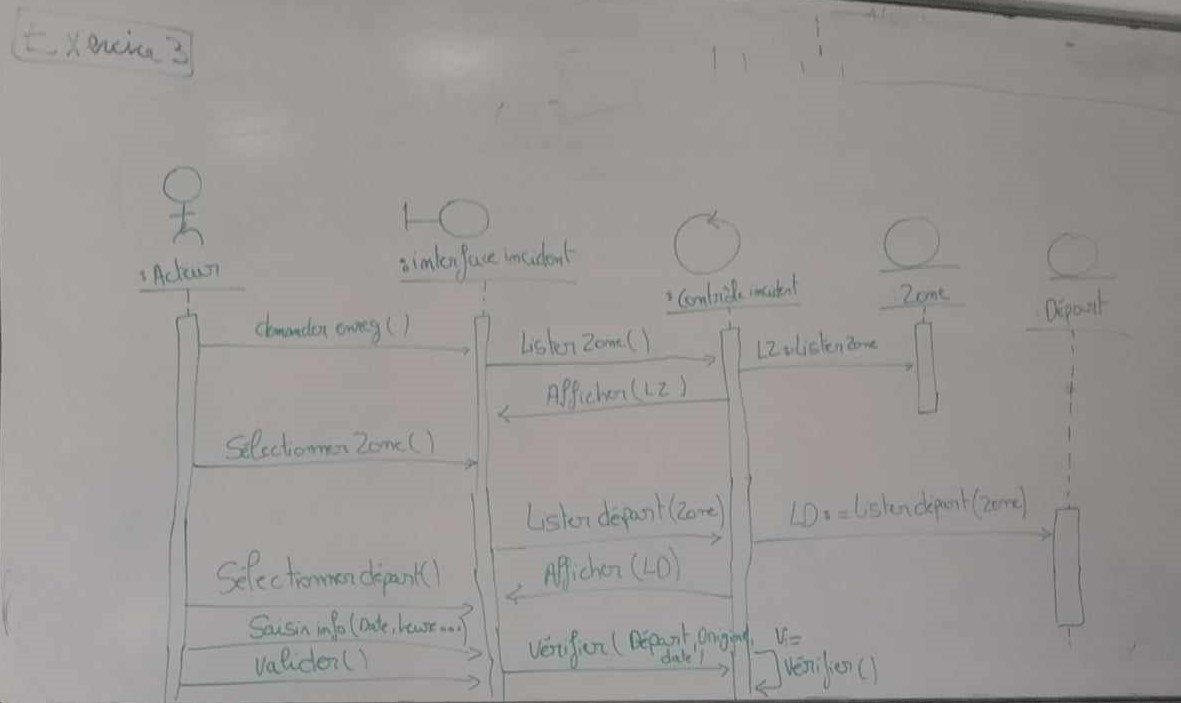 Exercice 3
: Acteur
: interface incident
: Contrôle incident
Zone
: Départ
demander enreg()
Lister Zone()
LZ:=Lister Zone
Afficher (LZ)
Sélectionner Zone()
Lister départ(Zone)
LD:=Lister départ(Zone)
Afficher (LD)
Sélectionner départ()
Saisir info (Date, heure...)
Vérifier (Départ, Origine,
date)
V:=
Vérifier()
Valider()